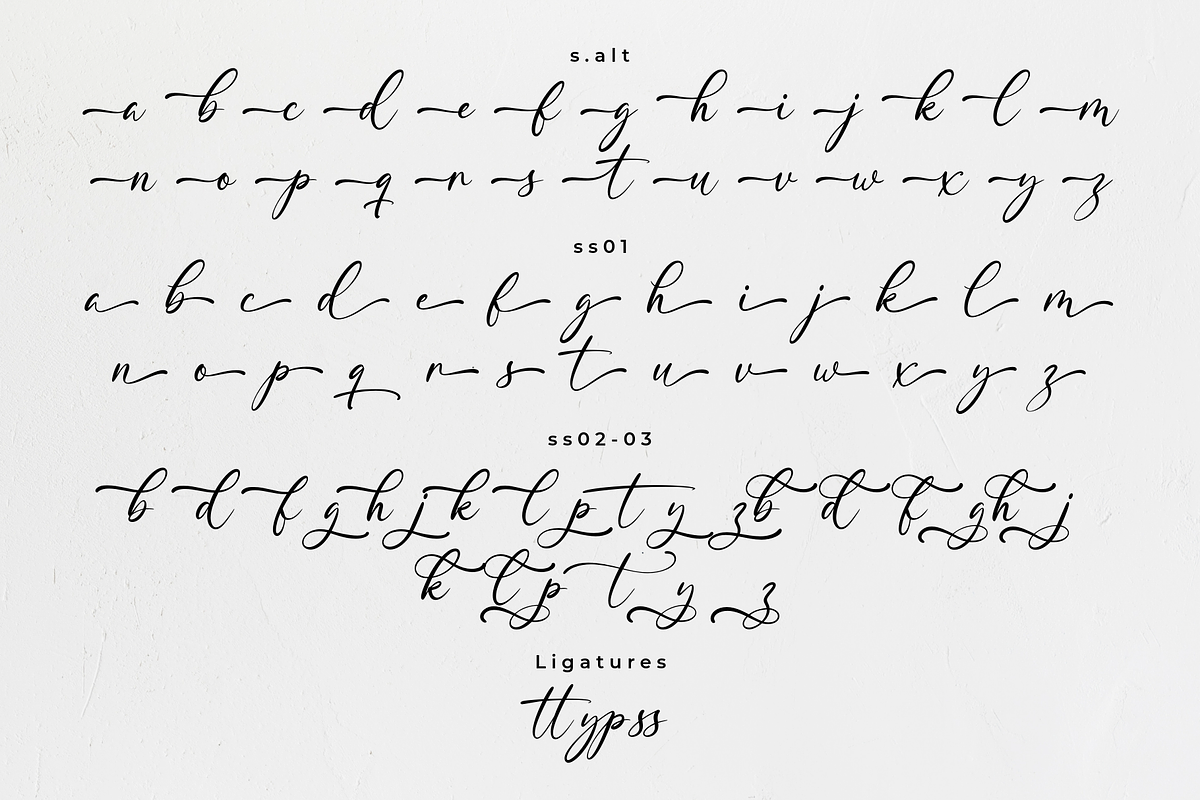 s.alt
a b c d e f g h i j k l m
n o p q r s t u v w x y z
ss01
a b c d e f g h i j k l m
n o p q r s t u v w x y z
ss02-03
b d f g h j k l p t y z b d f g h j
k l p t y z
Ligatures
tt yp ss